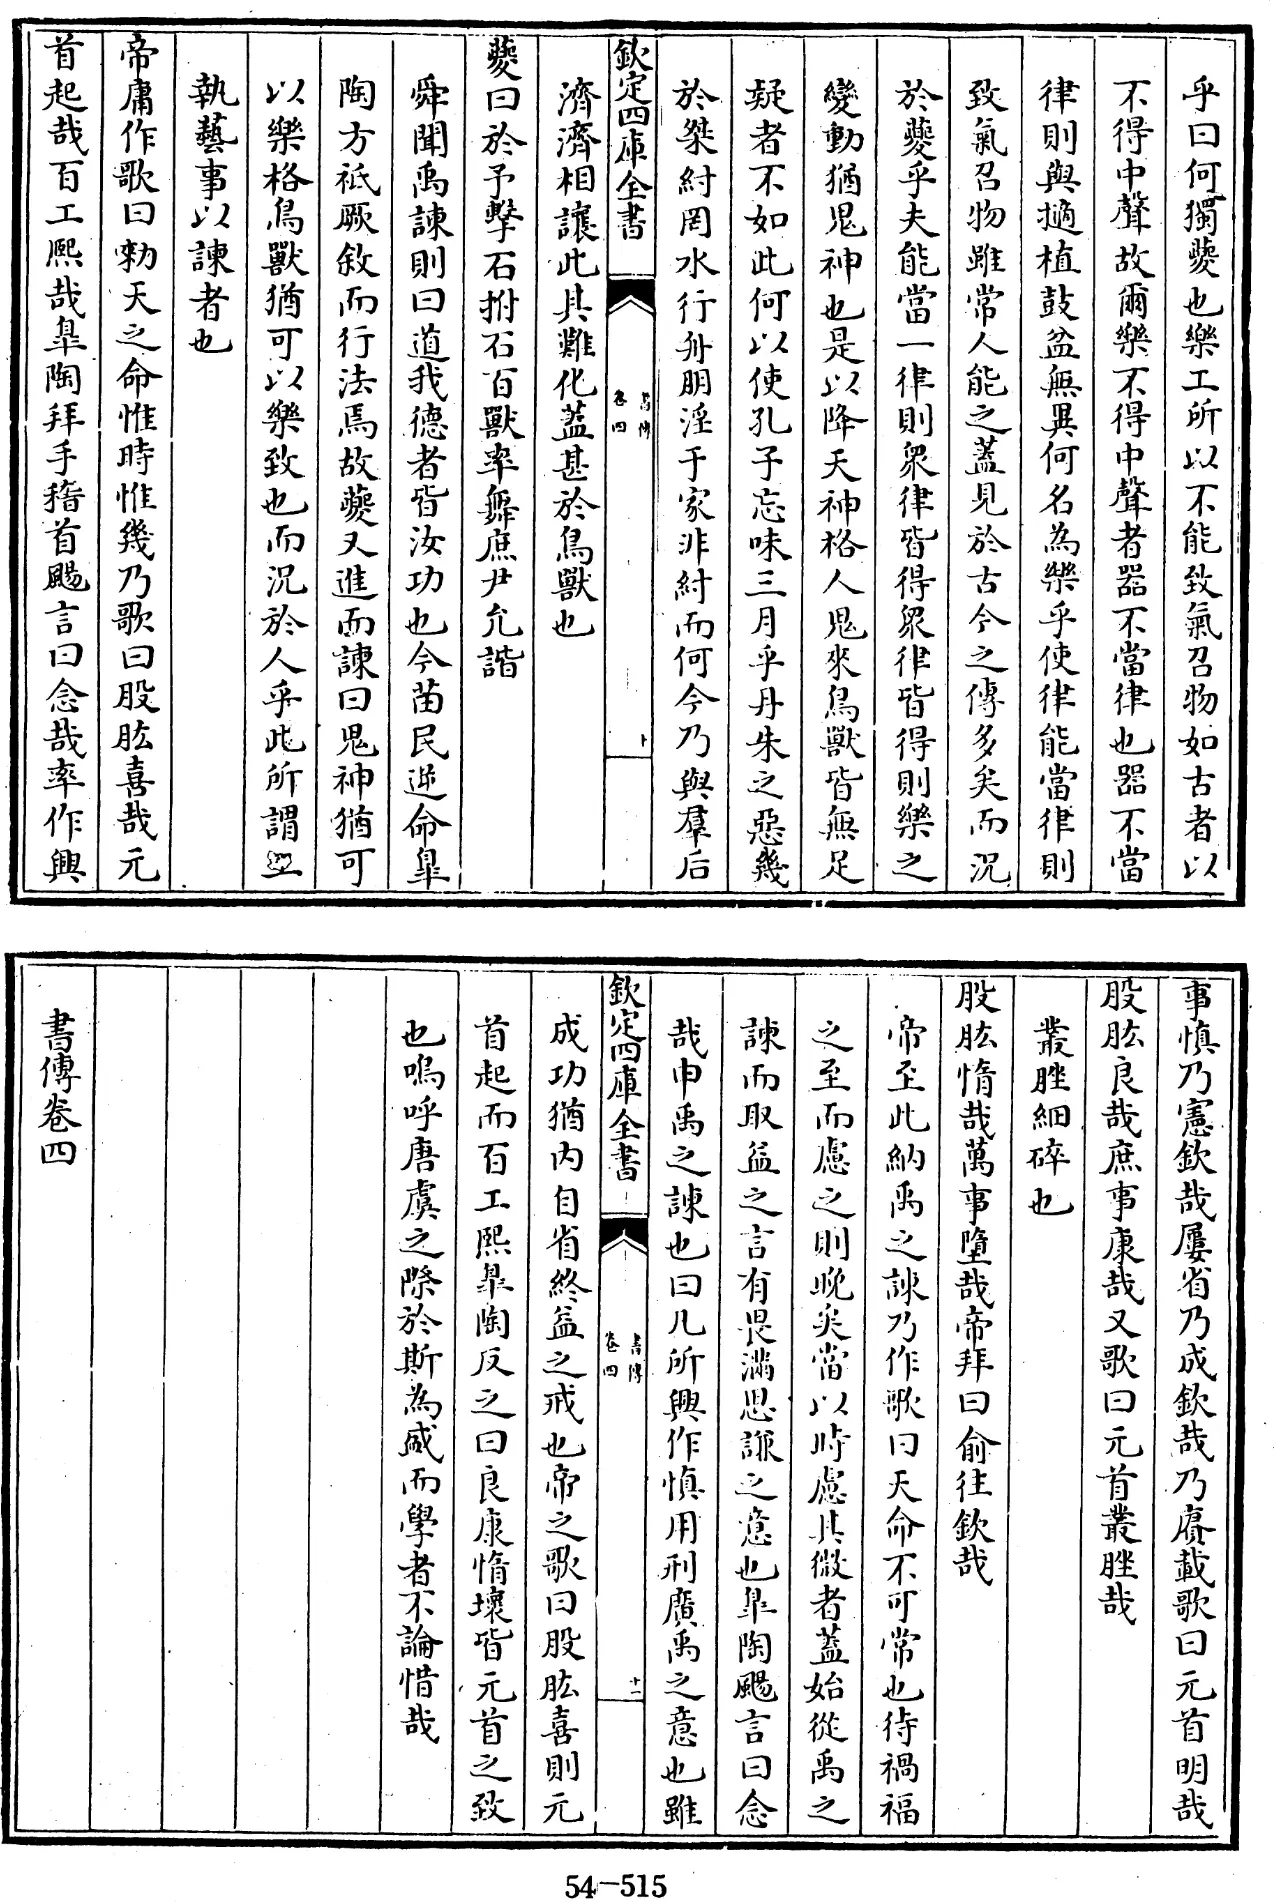 乎曰何獨夔也樂工所以不能致氣召物如古者以
不得中聲故爾樂不得中聲者器不當律也器不當
律則與擿植鼓盆無異何名為樂乎使律能當律則
致氣召物雖常人能之蓋見於古今之傳多矣而況
於夔乎夫能當一律則衆律皆得衆律皆得則樂之
變動猶鬼神也是以降天神格人鬼來鳥獸皆無足
疑者不如此何以使孔子忘味三月乎丹朱之惡幾
於桀紂罔水行舟朋淫于家非紂而何今乃與羣后
欽定四庫全書
書傳
卷四
十
濟濟相讓此其難化蓋甚於鳥獸也
夔曰於予擊石拊石百獸率舞庶尹允諧
舜聞禹諫則曰道我德者皆汝功也今苗民逆命臯
陶方祗厥敘而行法焉故夔又進而諫曰鬼神猶可
以樂格鳥獸猶可以樂致也而況於人乎此所謂工
執藝事以諫者也
帝庸作歌曰勑天之命惟時惟幾乃歌曰股肱喜哉元
首起哉百工熙哉臯陶拜手稽首颺言曰念哉率作興
事慎乃憲欽哉屢省乃成欽哉乃賡載歌曰元首明哉
股肱良哉庶事康哉又歌曰元首叢脞哉
叢脞細碎也
股肱惰哉萬事墮哉帝拜曰俞往欽哉
帝至此納禹之諫乃作歌曰天命不可常也待禍福
之至而慮之則晚矣當以時慮其微者蓋始從禹之
諫而取益之言有畏滿思謙之意也臯陶颺言曰念
哉申禹之諫也曰凡所興作慎用刑廣禹之意也雖
欽定四庫全書
書傳
卷四
十一
成功猶內自省終益之戒也帝之歌曰股肱喜則元
首起而百工熙臯陶反之曰良康惰壞皆元首之致
也嗚呼唐虞之際於斯為盛而學者不論惜哉
書傳卷四
54-515